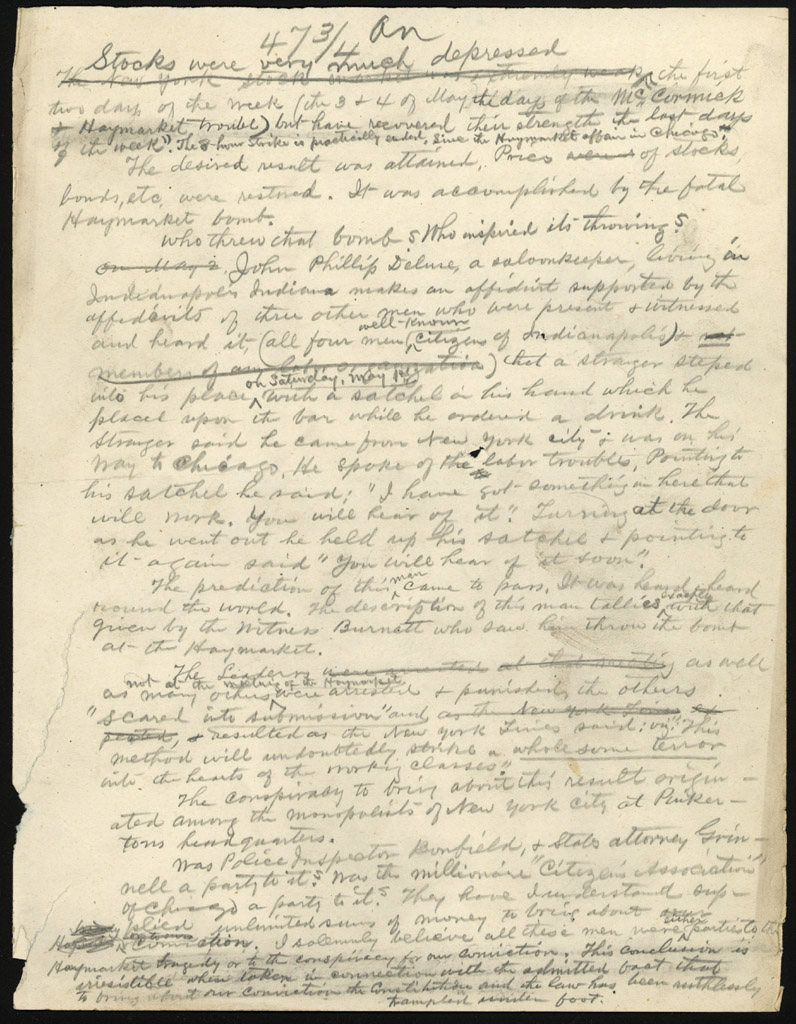 473/4 on
Stocks were very much depressed
The New York stock market was extremely weak, the first
two days of the week (the 3 & 4 of May, the days of the McCormick
& Haymarket trouble) but have recovered their strength the last days
of the week". The 8-hour Strike is practically ended, since the Haymarket affair in Chicago."
The desired result was attained. Prices were of stocks,
bonds, etc, were restored. It was accomplished by the fatal
Haymarket bomb.
Who threw that bomb? Who inspired its throwing?
on May 2, John Phillip Deluse, a saloonkeeper, living in
Indianapolis Indiana makes an affidavit supported by the
affidavits of three other men who were present & witnessed
well-known
and heard it, (all four men citizens of Indianapolis) & not
members of any labor organization) that a stranger steped
on Saturday, May 1st
into his place, with a satchel in his hand which he
placed upon the bar while he ordered a drink. The
Stranger said he came from New York city & was on his
way to Chicago. He spoke of the labor troubles, Pointing to
his satchel he said: "I have got something in here that
will work. You will hear of it." Turning at the door
as he went out he held up his satchel & pointing to
it again said "You will hear of it soon".
The prediction of this man came to pass. It was heard heard
round the world. The description of this man tallies exactly with that
given by the Witness Burnett who saw him throw the bomb
at the Haymarket.
The Leaders were arrested at that meeting as well
not at the meeting of the Haymarket
as many others were arrested & punished, the others
"scared into submission" and as the New York Times
& resulted as the New York Times said: viz: "This
method will undoubtedly strike a wholesome terror
into the hearts of the working classes."
The conspiracy to bring about this result origin-
ated among the monopolists of New York city at Pinker-
tons headquarters.
Was Police Inspector Bonfield, & States attorney Grin-
nell a party to it? Was the millionaire "Citizen's Association"
of Chicago a party to it? They have I understand sup-
plied unlimited sums of money to bring about our
conviction. I solemnly believe all these men were either parties to the
Haymarket tragedy or to the conspiracy for our conviction. This conclusion is
irresistible when taken in connection with the admitted fact that
to bring about our conviction the Constitution and the law has been ruthlessly
trampled under foot.